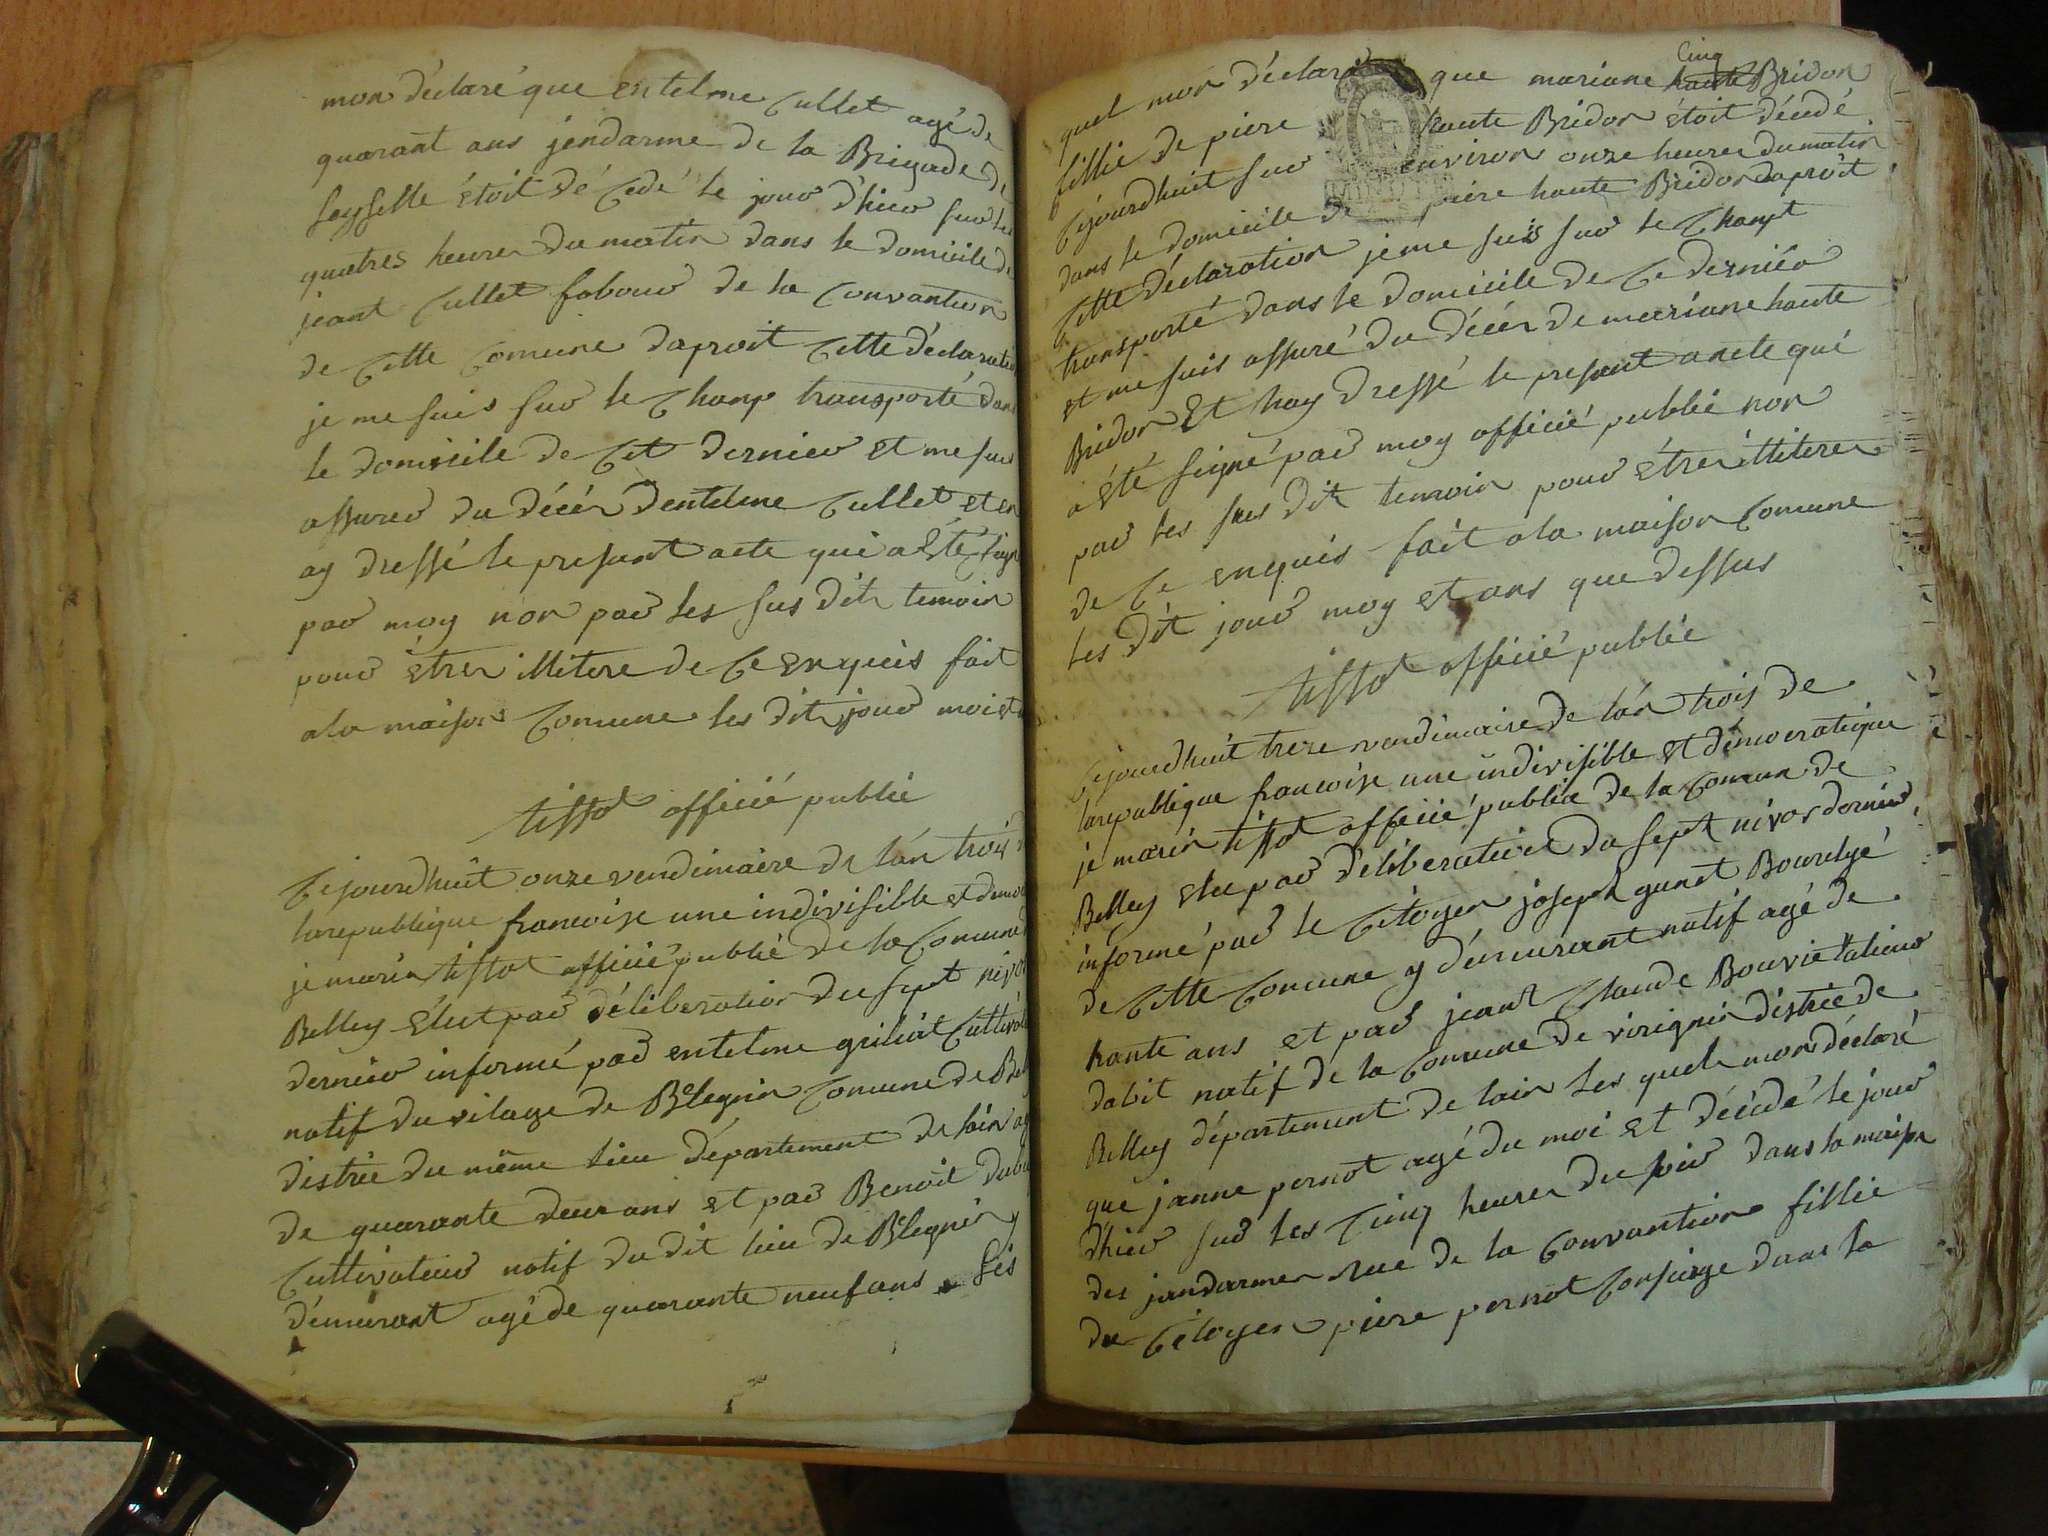 mon déclaré que entelme Cullet agé de
quarant ans jendarme de la Brigade de
seysselle étoit dé Cedé le jour d'hier sur les
quatres heures du matin dans le domicile de
jeant Cullet fabour de la Convantion
de Cette Comune daproit Cette déclaratio
je me suis sur le Champ transporté dans
le domicile de Cet dernier et me suis
assurer du décés dentelme Cullet et en
ay dressé le presant acte qui a été sign
par moy non par les sus dit temoin
pour étres illitere de Ce enquis fait
a la maison Comune les dit jour mois et
tissot officié publié
Cejourdhuit onze vendimaire de lan trois d
larepublique francoise une indivisible et démo
je marin tissot officié publié de la Comune
Belley élut par déliberation du sept nivo
dernier informé par entelme griliat Cultivat
natif du vilage de Bélegnin Comune de Bel
distrie du même lieu département de lain ag
de quarante deux ans et par Benoit dub
Cultivateur natif du dit lieu de Bélegnin y
démurant agé de quarante neuf ans les
quel mon déclaré que mariane Cinq Bridon
fillie de piere hante Bridon étoit décédé
Cejourdhuit sur environ onze heures du matin
dans le domicile de piere hante Bridon daproit
Cette déclaration je me suis sur le Champt
transporté dans le domicile de Ce derniér
et me suis assuré du décés de mariane hante
Bridon et hay dressé le presant a acte qué
a été signé par moy officié publié non
par les sus dit temoin pour étres illiteres
de Ce enquis fait a la maison Comune
les dit jour moy et ans que dessus
tissot officié publié
Cejourdhuit treze vendimaire de lan trois de
larepublique francoise une indivisible et démocratique
je marin tissot officié publié de la Comune de
Belley élu par déliberation du sept nivos dernier
informé par le Citoyen joseph gunet Bourelyé
de Cette Comune y démurant natif agé de
hante ans et par jeant Claude Bouvié talieur
dabit natif de la Comune de virignin distrié de
Belley département de lain les quels mon déclaré
que janne pernot agé du moi et décédé le jour
dhier sur les Cinq heures du soir dans la maison
des jandarmes Rue de la Convantion fillie
du Citoyen piere pernot Consierge dans la